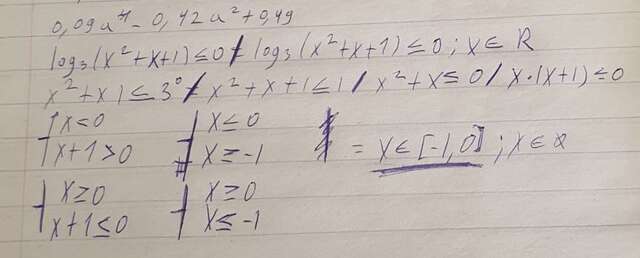 0,09u⁴ - 0,42u² + 0,49
log₃(x²+x+1) ≤ 0 / log₃(x²+x+1) ≤ 0 ; x ∈ R
x²+x1 ≤ 3⁰ / x²+x+1 ≤ 1 / x²+x ≤ 0 / x·(x+1) ≤ 0
{ x<0 { x≤0
{ x+1>0 { x≥-1 = x ∈ [-1,0] ; x ∈ R
{ x≥0 { x≥0
{ x+1≤0 { x≤-1